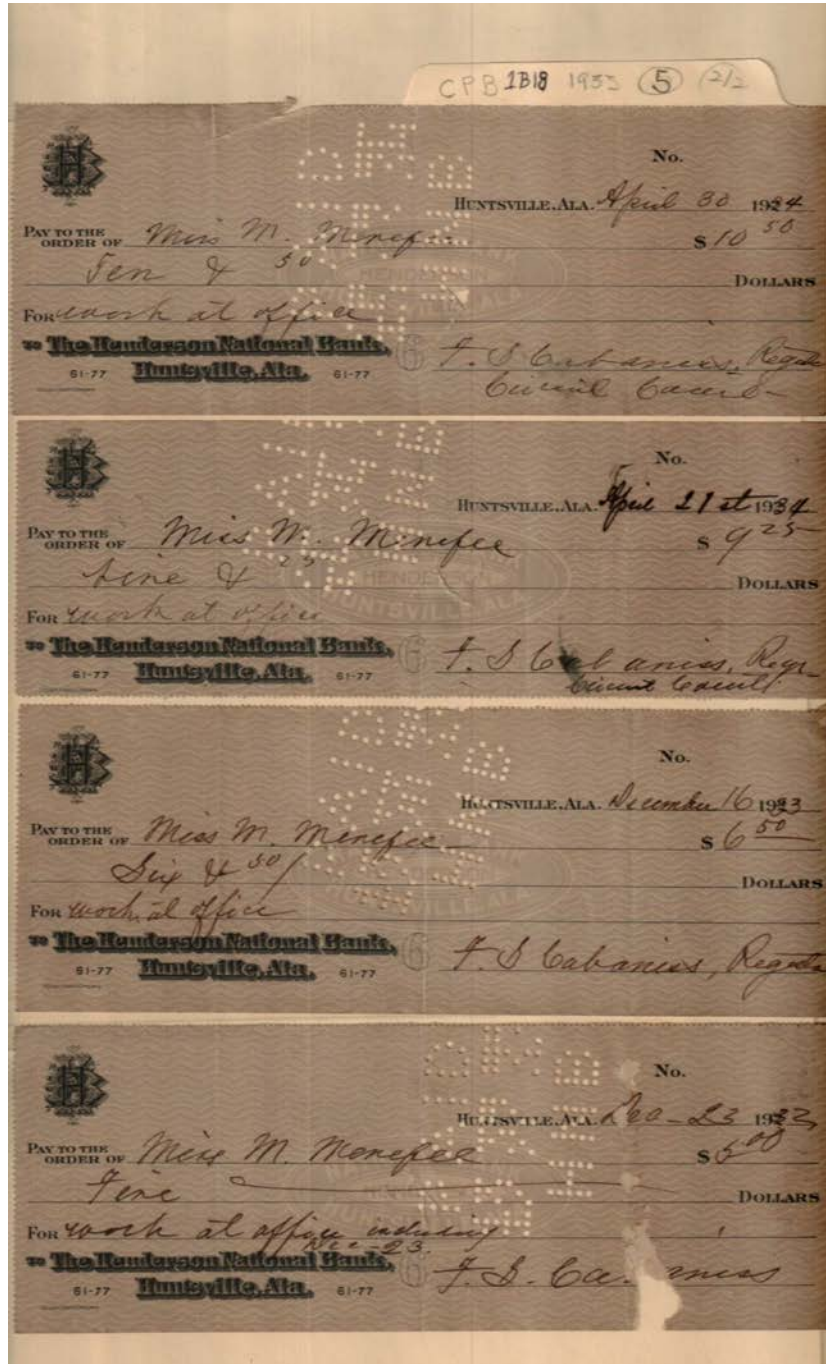 CPB 1B18 1933 5 2/2
H
No.
HUNTSVILLE, ALA. April 30 1934
PAY TO THE ORDER OF Miss M. Menefee $10 50
Ten & 50 DOLLARS
FOR work at office
TO The Henderson National Bank,
61-77 Huntsville, Ala. 61-77
6
F. S. Cabaniss, Register
Circuit Court
H
No.
HUNTSVILLE, ALA. April 21st 1934
PAY TO THE ORDER OF Miss M. Menefee $9 25
& 25 DOLLARS
FOR work at office
TO The Henderson National Bank,
61-77 Huntsville, Ala. 61-77
6
F. S Cabaniss, Regr
Circuit Court
H
No.
HUNTSVILLE, ALA. December 16 1933
PAY TO THE ORDER OF Miss M. Menefee $6 50
Six & 50/ DOLLARS
FOR work at office
TO The Henderson National Bank,
61-77 Huntsville, Ala. 61-77
6
F. S Cabaniss, Register
H
No.
HUNTSVILLE, ALA. Dec - 23 1932
PAY TO THE ORDER OF Miss M. Menefee $5 00
Five DOLLARS
FOR work at office including
Dec - 23
TO The Henderson National Bank,
61-77 Huntsville, Ala. 61-77
6
F. S. Cabaniss